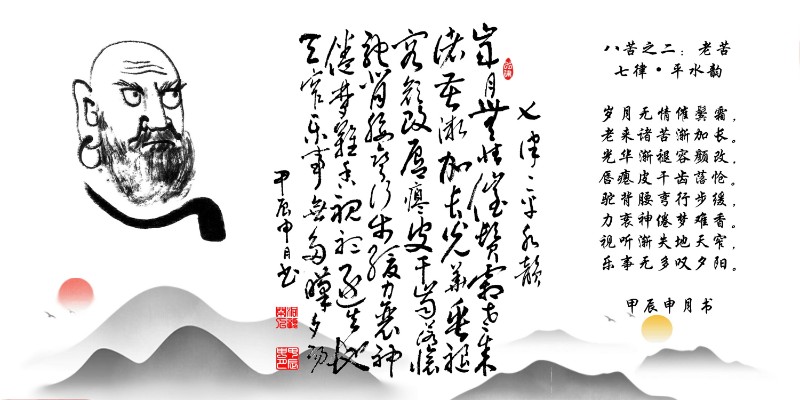 八苦之二：老苦
七律·平水韵
岁月无情催鬓霜，
老来诸苦渐加长。
光华渐褪容颜改，
唇瘪皮干齿落怆。
驼背腰弯行步缓，
力衰神倦梦难香。
视听渐失地天窄，
乐事无多叹夕阳。
甲辰申月书
七律·平水韵
岁月無情催鬓霜老来
诸苦渐加长光華褪
容颜改唇瘪皮干齿落怆
驼背腰弯行步缓力衰神
倦梦難香视听失地
天窄乐事無多嘆夕阳
甲辰申月书